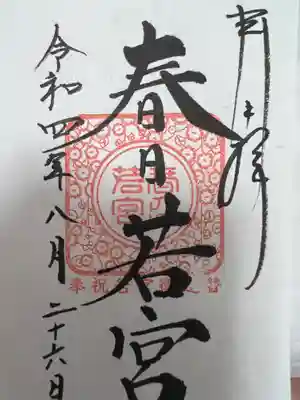 奉拝
春日若宮
若宮
令和四年八月二十六日